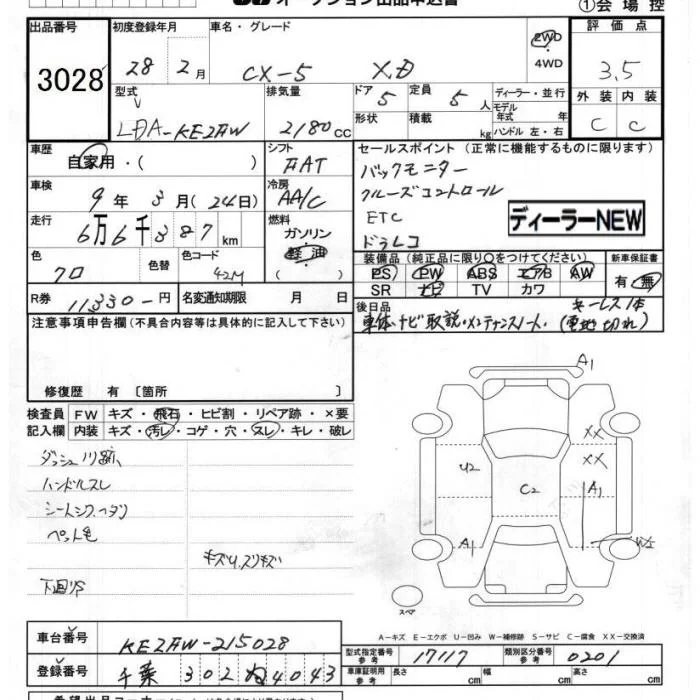 ①会場控
出品番号 3028
初度登録年月 28年 2月
車名・グレード CX-5 XD
2WD
4WD
評価点 3.5
型式 LDA-KE2AW
排気量 2180cc
ドア 5
定員 5人
ディーラー・並行
モデル年式 年
形状
積載 kg
ハンドル 左・右
外装 C
内装 C
車歴 自家用・( )
シフト FAT
セールスポイント (正常に機能するものに限ります)
バックモニター
クルーズコントロール
ETC
ドラレコ
ディーラーNEW
車検 9年 3月(24日)
冷房 AA/C
走行 6万6千387km
燃料 ガソリン
軽油
( )
色 クロ
色替
色コード 42M
装備品 (純正品に限り○をつけてください)
PS PW ABS エアB AW
SR ナビ TV カワ
新車保証書
有・無
R券 11330-円
名変通知期限 月 日
後日品
キーレス1本
車体、ナビ取説・メンテナンスノート、(電池切れ)
注意事項申告欄(不具合内容等は具体的に記入して下さい)
修復歴 有〔箇所 〕
検査員記入欄
FW キズ・飛石・ヒビ割・リペア跡・×要
内装 キズ・汚レ・コゲ・穴・スレ・キレ・破レ
ハンドルスレ
ペット毛
下回りS
A1
XX
XX
U2
C2
A1
A1
W2
スペア
A−キズ E−エクボ U−凹み W−補修跡 S−サビ C−腐食 XX−交換済
車台番号 KE2AW-215028
登録番号 千葉 302 ぬ 4043
型式指定番号 参考 17117
類別区分番号 参考 0201
車庫証明用 参考 長さ cm 幅 cm 高さ cm